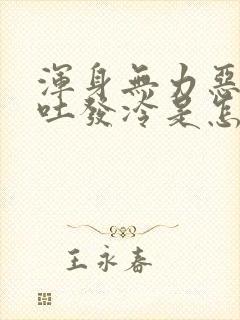 渾身無力惡
吐發冷是怎
王永春